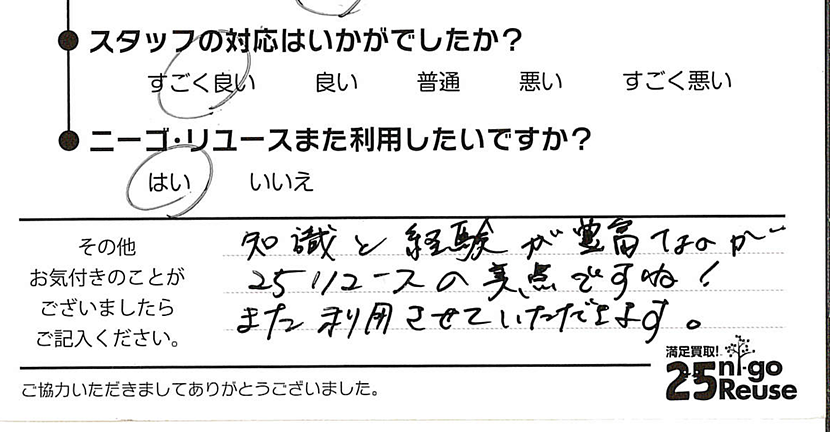 スタッフの対応はいかがでしたか？
すごく良い 良い 普通 悪い すごく悪い
ニーゴ・リユースまた利用したいですか？
はい いいえ
その他
お気付きのことが
ございましたら
ご記入ください。
知識と経験が豊富なのが
25リユースの美点ですね！
また利用させていただきます。
ご協力いただきましてありがとうございました。
満足買取！
25 ni・go
Reuse